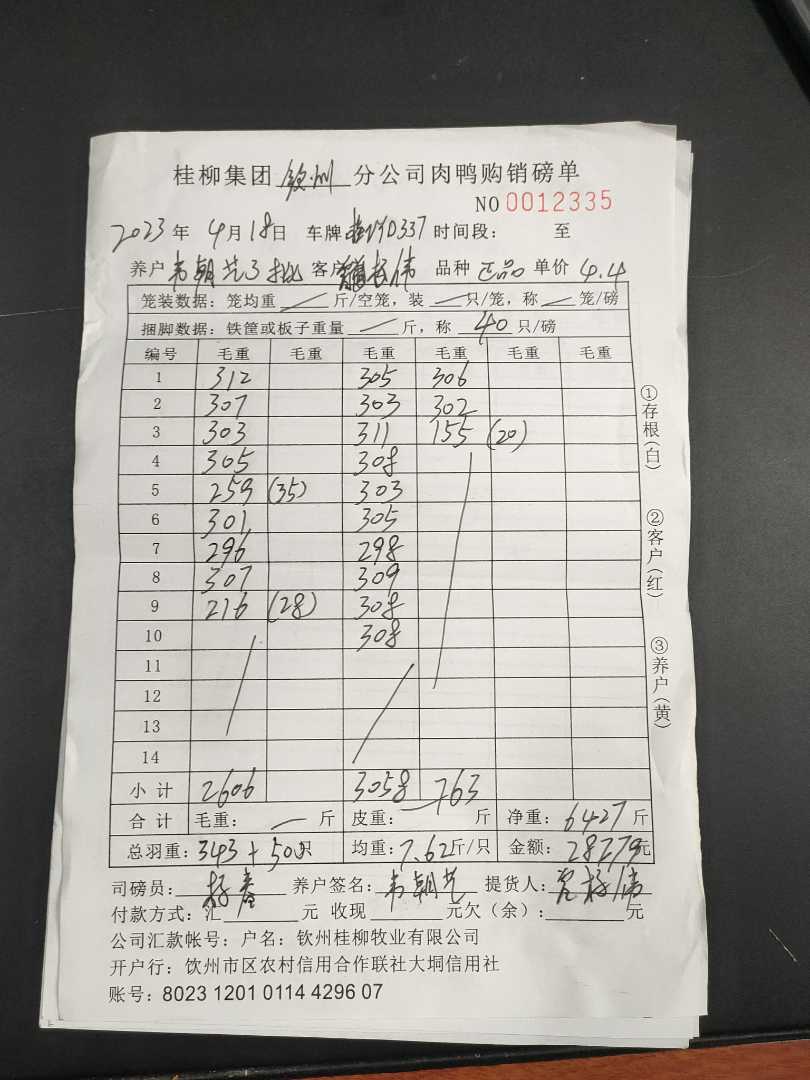 桂柳集团 钦州 分公司肉鸭购销磅单
NO 0012335
2023 年 4 月 18 日 车牌 D337 时间段： 至
养户 韦朝艺3批 客户 伟 品种 正品 单价 4.4
笼装数据：笼均重 — 斤/空笼，装 — 只/笼，称 — 笼/磅
捆脚数据：铁筐或板子重量 — 斤，称 40 只/磅
编号 毛重 毛重 毛重 毛重 毛重 毛重
1 312 305 306
2 307 303 302
3 303 311 155 (20)
4 305 308
5 259 (35) 303
6 301 305
7 296 298
8 307 309
9 216 (28) 308
10 308
11
12
13
14
小计 2606 3058 763
合计 毛重： — 斤 皮重： — 斤 净重： 6427 斤
总羽重：343+500只 均重：7.62斤/只 金额：28279元
司磅员： 养户签名：韦朝艺 提货人： 伟
付款方式：汇 元 收现 元欠（余）： 元
公司汇款帐号：户名：钦州桂柳牧业有限公司
开户行：钦州市区农村信用合作联社大垌信用社
账号：8023 1201 0114 4296 07
①存根(白)
②客户(红)
③养户(黄)